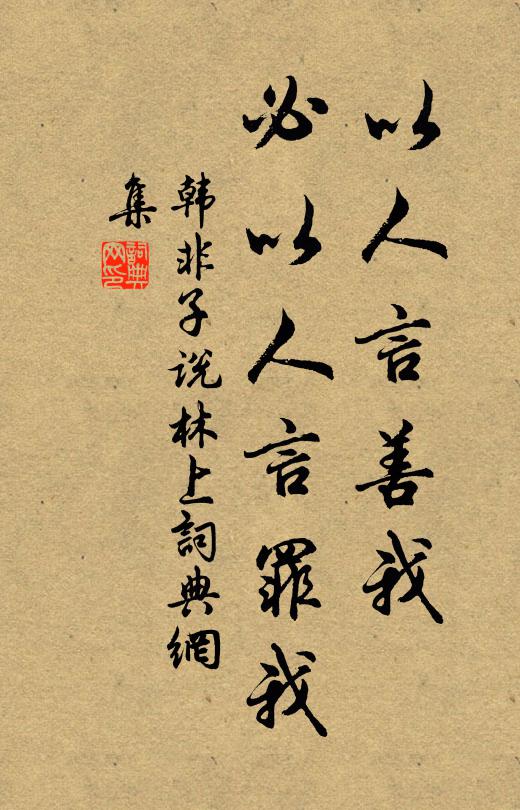 以人言善我
必以人言罪我
韩非子说林上詞典網
集
詞典
网印